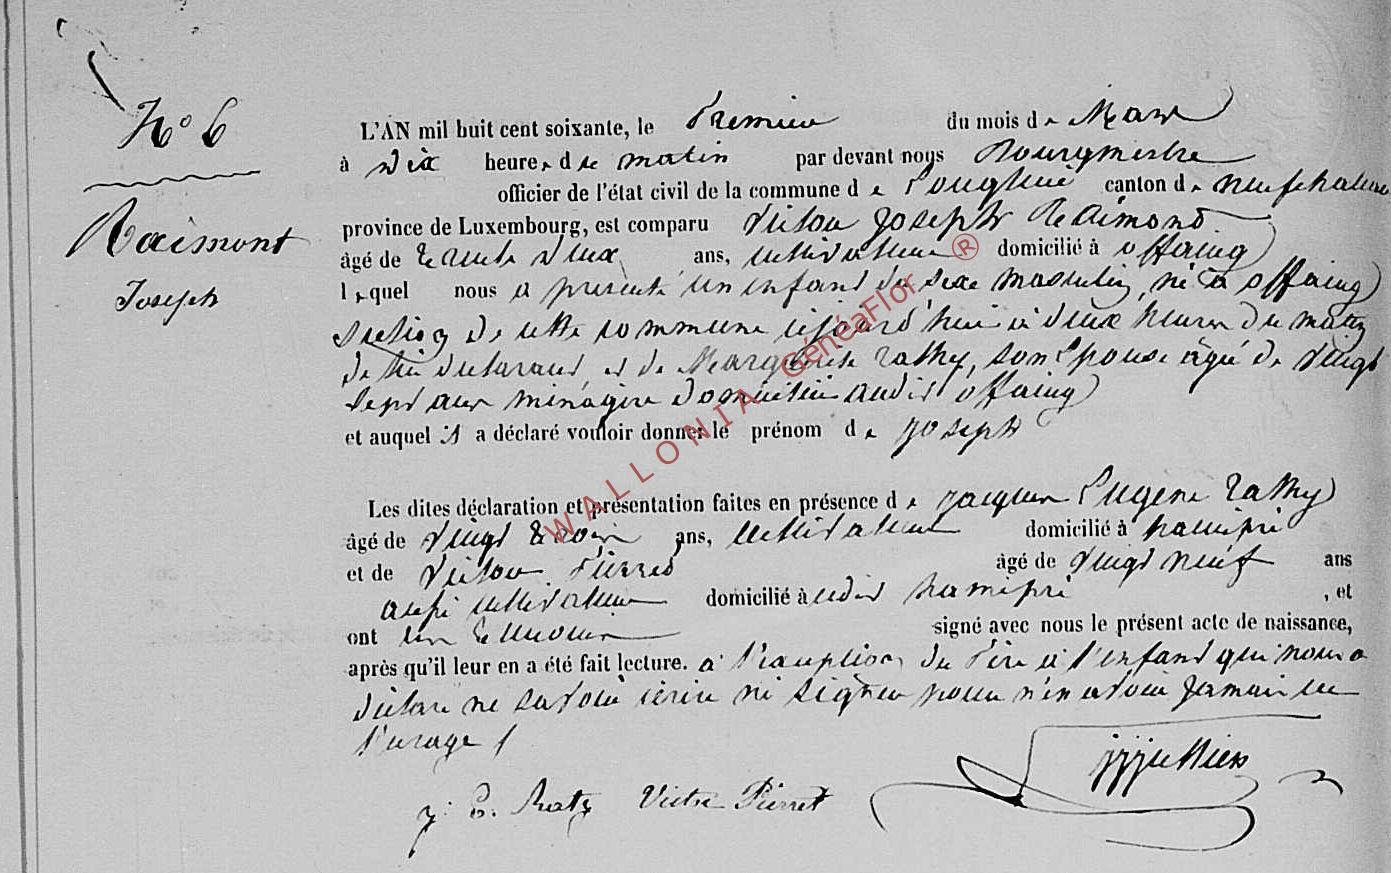 N° 6
Raimont
Joseph
L'AN mil huit cent soixante, le Premier du mois de Mars
à dix heures de matin par devant nous Bourgmestre
officier de l'état civil de la commune de Longlier canton de neufchateau
province de Luxembourg, est comparu Victor Joseph Reaimond
âgé de trente deux ans, cultivateur domicilié à offaing
lequel nous a presenté un enfant du sexe masculin, né à offaing
section de cette commune cejourd'hui à deux heures du matin
de lui declarant et de Marguerite rathy, son Epouse âgé de vingt
sept ans ménagère domicilié audit offaing
et auquel il a déclaré vouloir donner le prénom de Joseph
Les dites déclaration et présentation faites en présence de jacques Eugene rathy
âgé de vingt trois ans, cultivateur domicilié à hamipré
et de Victor Pierret âgé de vingt neuf ans
aussi cultivateur domicilié à udit hamipré , et
ont les temoins signé avec nous le présent acte de naissance,
après qu'il leur en a été fait lecture. a l'exception du Père à l'enfant qui nous a
déclaré ne savoir écrire ni signer pour n'en avoir jamais eu
l'usage /
J. E. Raty Victor Pierret
WALLONIA GénéaFlor ®